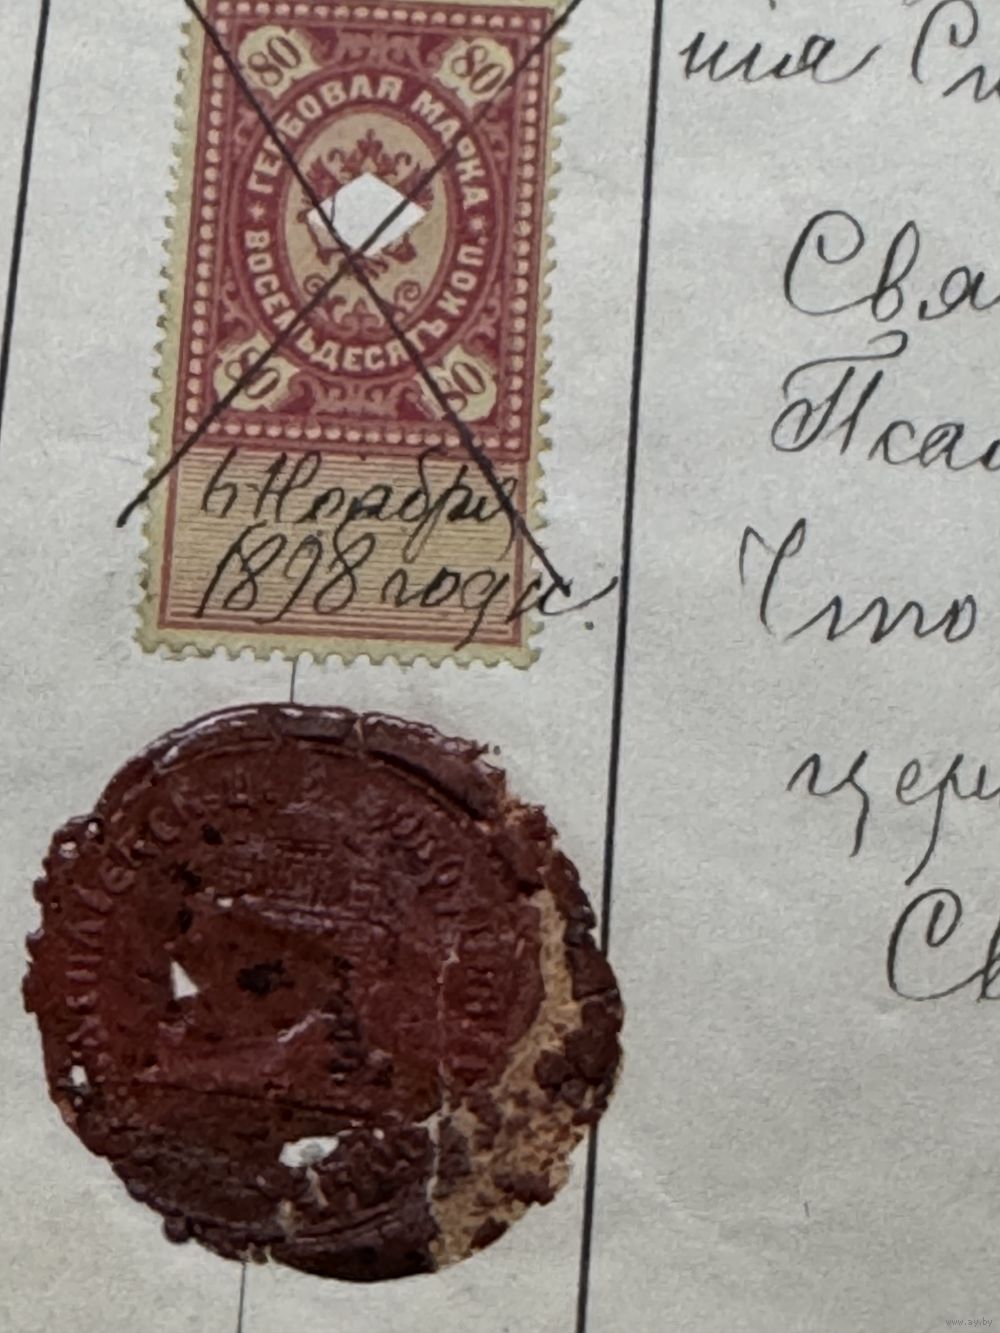 80 80
ГЕРБОВАЯ МАРКА
ВОСЕМЬДЕСЯТЪ КОП.
80 80
6 Ноября
1898 года.
ния
Свя
Псал
Что
церк
Св
www.ay.by